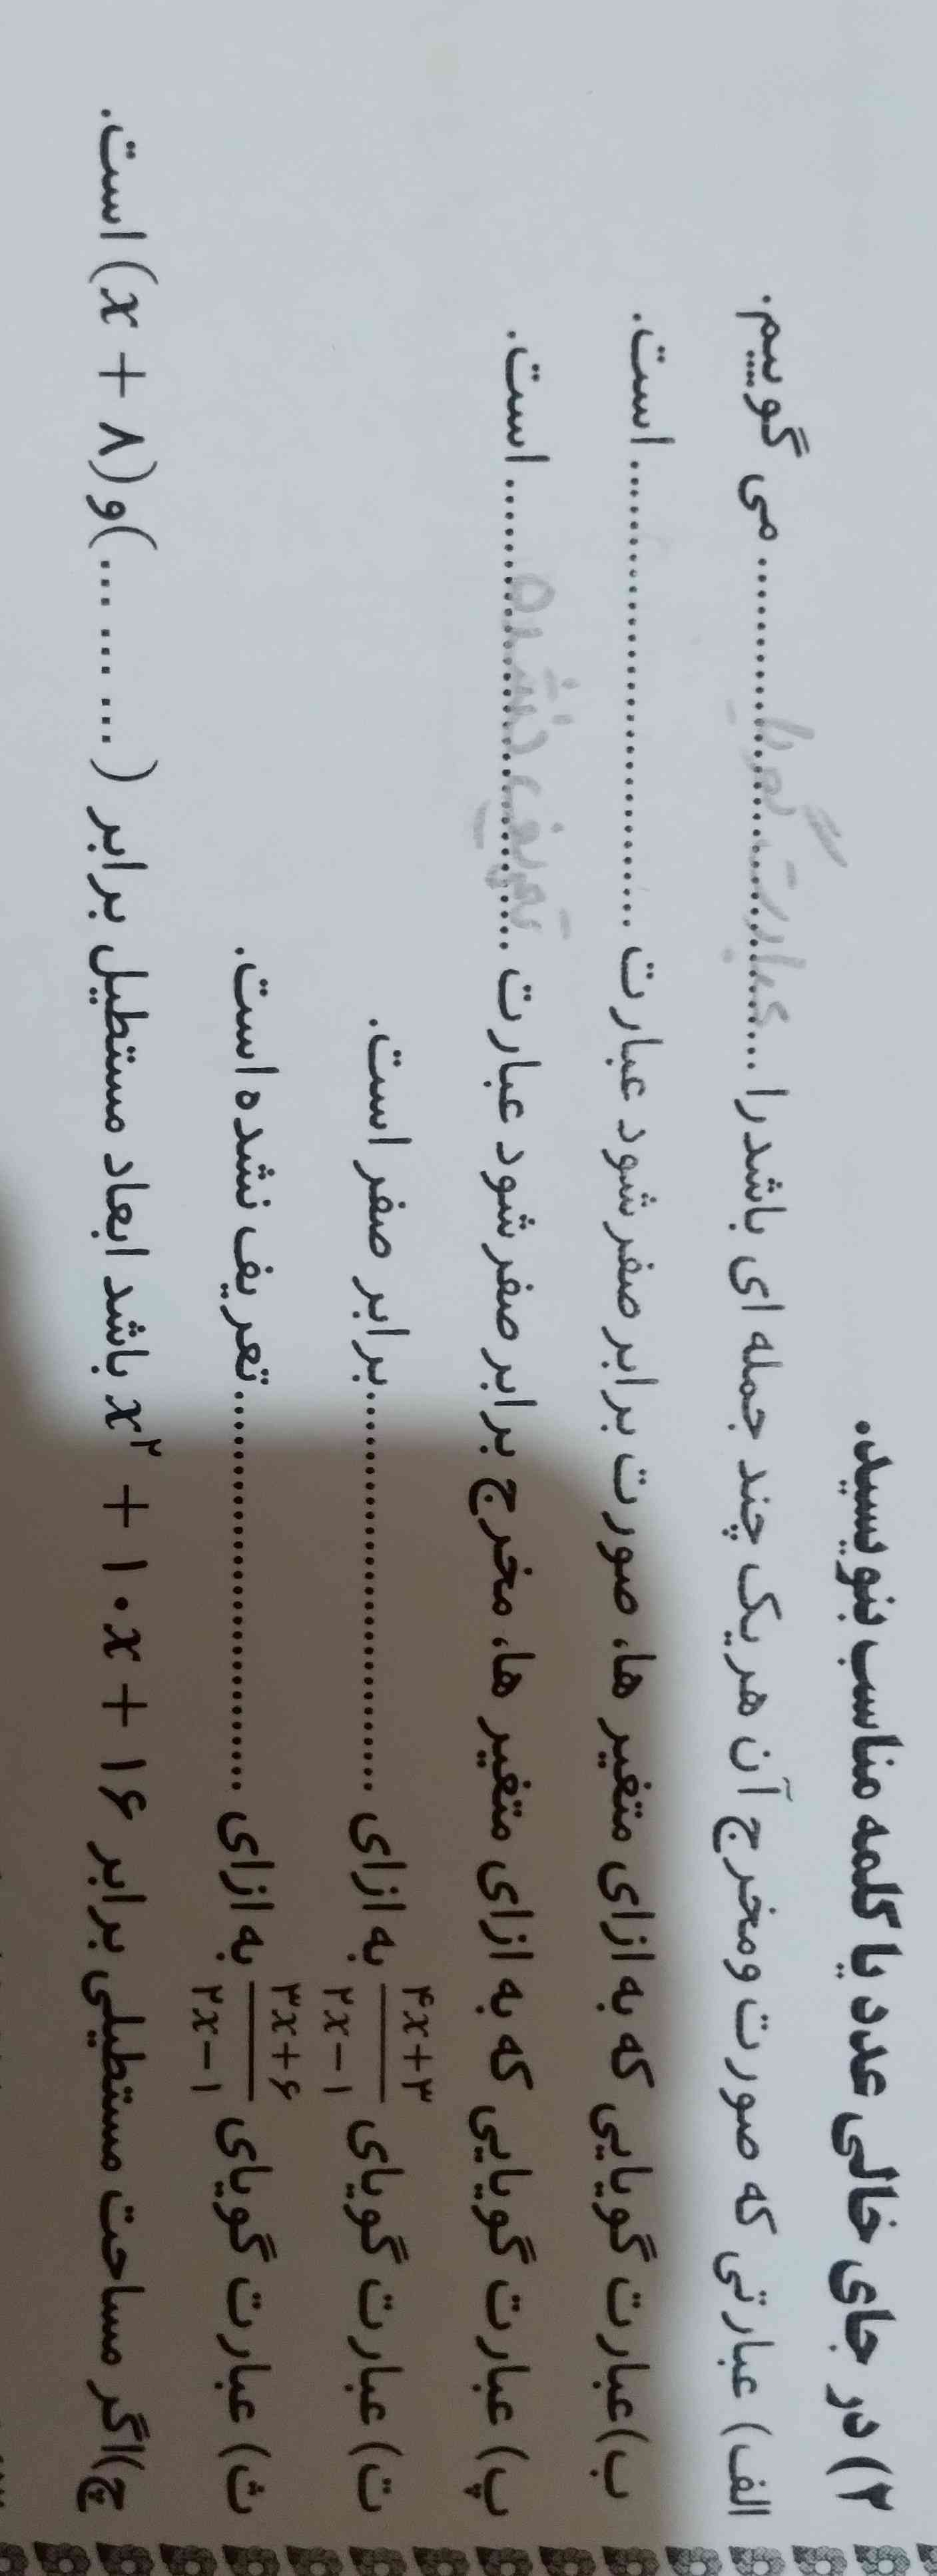 ۲) در جای خالی عدد یا کلمه مناسب بنویسید.
الف) عبارتی که صورت ومخرج آن هریک چند جمله ای باشد را ...عبارت گویا... می گوییم.
ب) عبارت گویایی که به ازای متغیر ها، صورت برابر صفر شود عبارت .............................. است.
پ) عبارت گویایی که به ازای متغیر ها، مخرج برابر صفر شود عبارت ...تعریف نشده... است.
ت) عبارت گویای (۴x+۳)/(۲x−۱) به ازای .............................. برابر صفر است.
ث) عبارت گویای (۳x+۶)/(۲x−۱) به ازای .............................. تعریف نشده است.
ج) اگر مساحت مستطیلی برابر x^۲ + ۱۰x + ۱۶ باشد ابعاد مستطیل برابر (... ... ...) و (x + ۸) است.